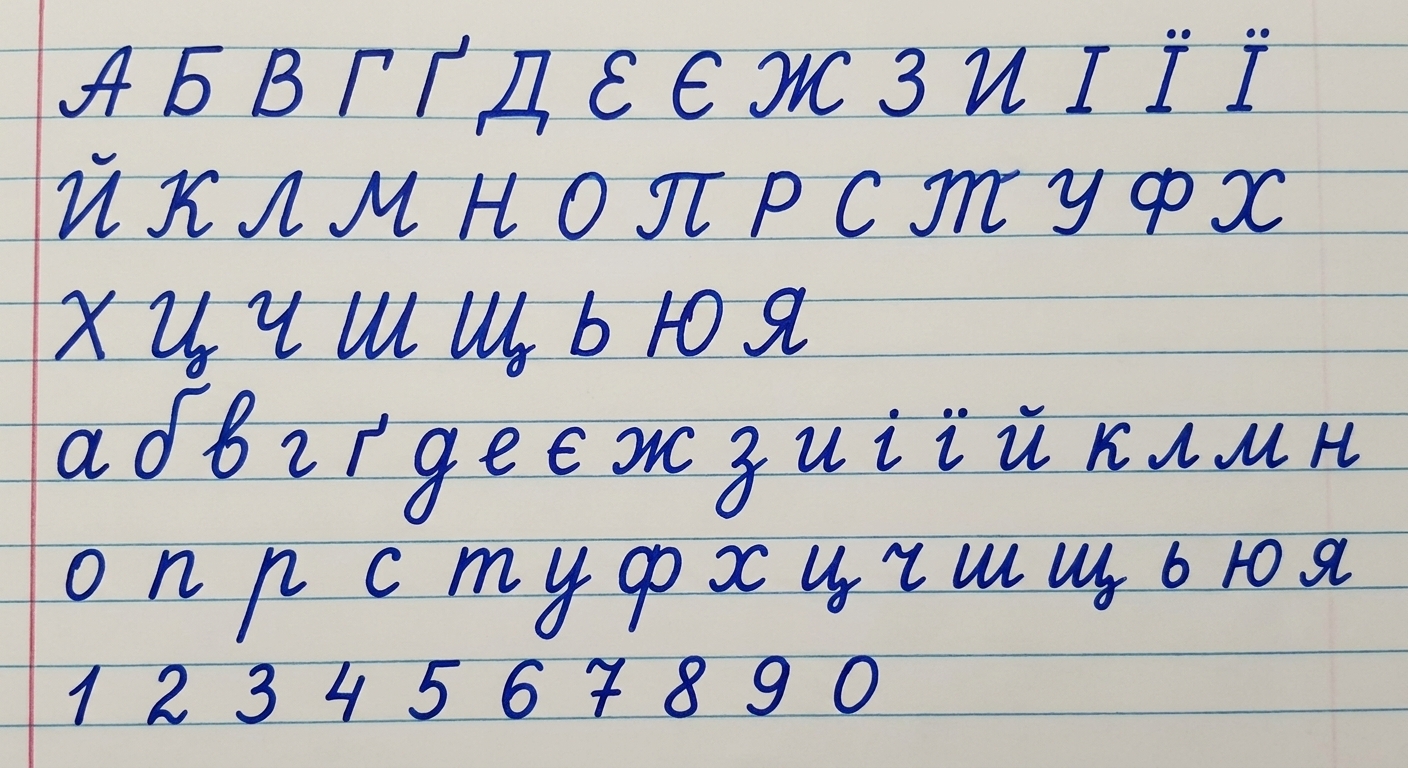 А Б В Г Ґ Д Е Є Ж З И І Ї Ї
Й К Л М Н О П Р С Т У Ф Х
Х Ц Ч Ш Щ Ь Ю Я
а б в г ґ д е є ж з и і ї й к л м н
о п р с т у ф х ц ч ш щ ь ю я
1 2 3 4 5 6 7 8 9 0